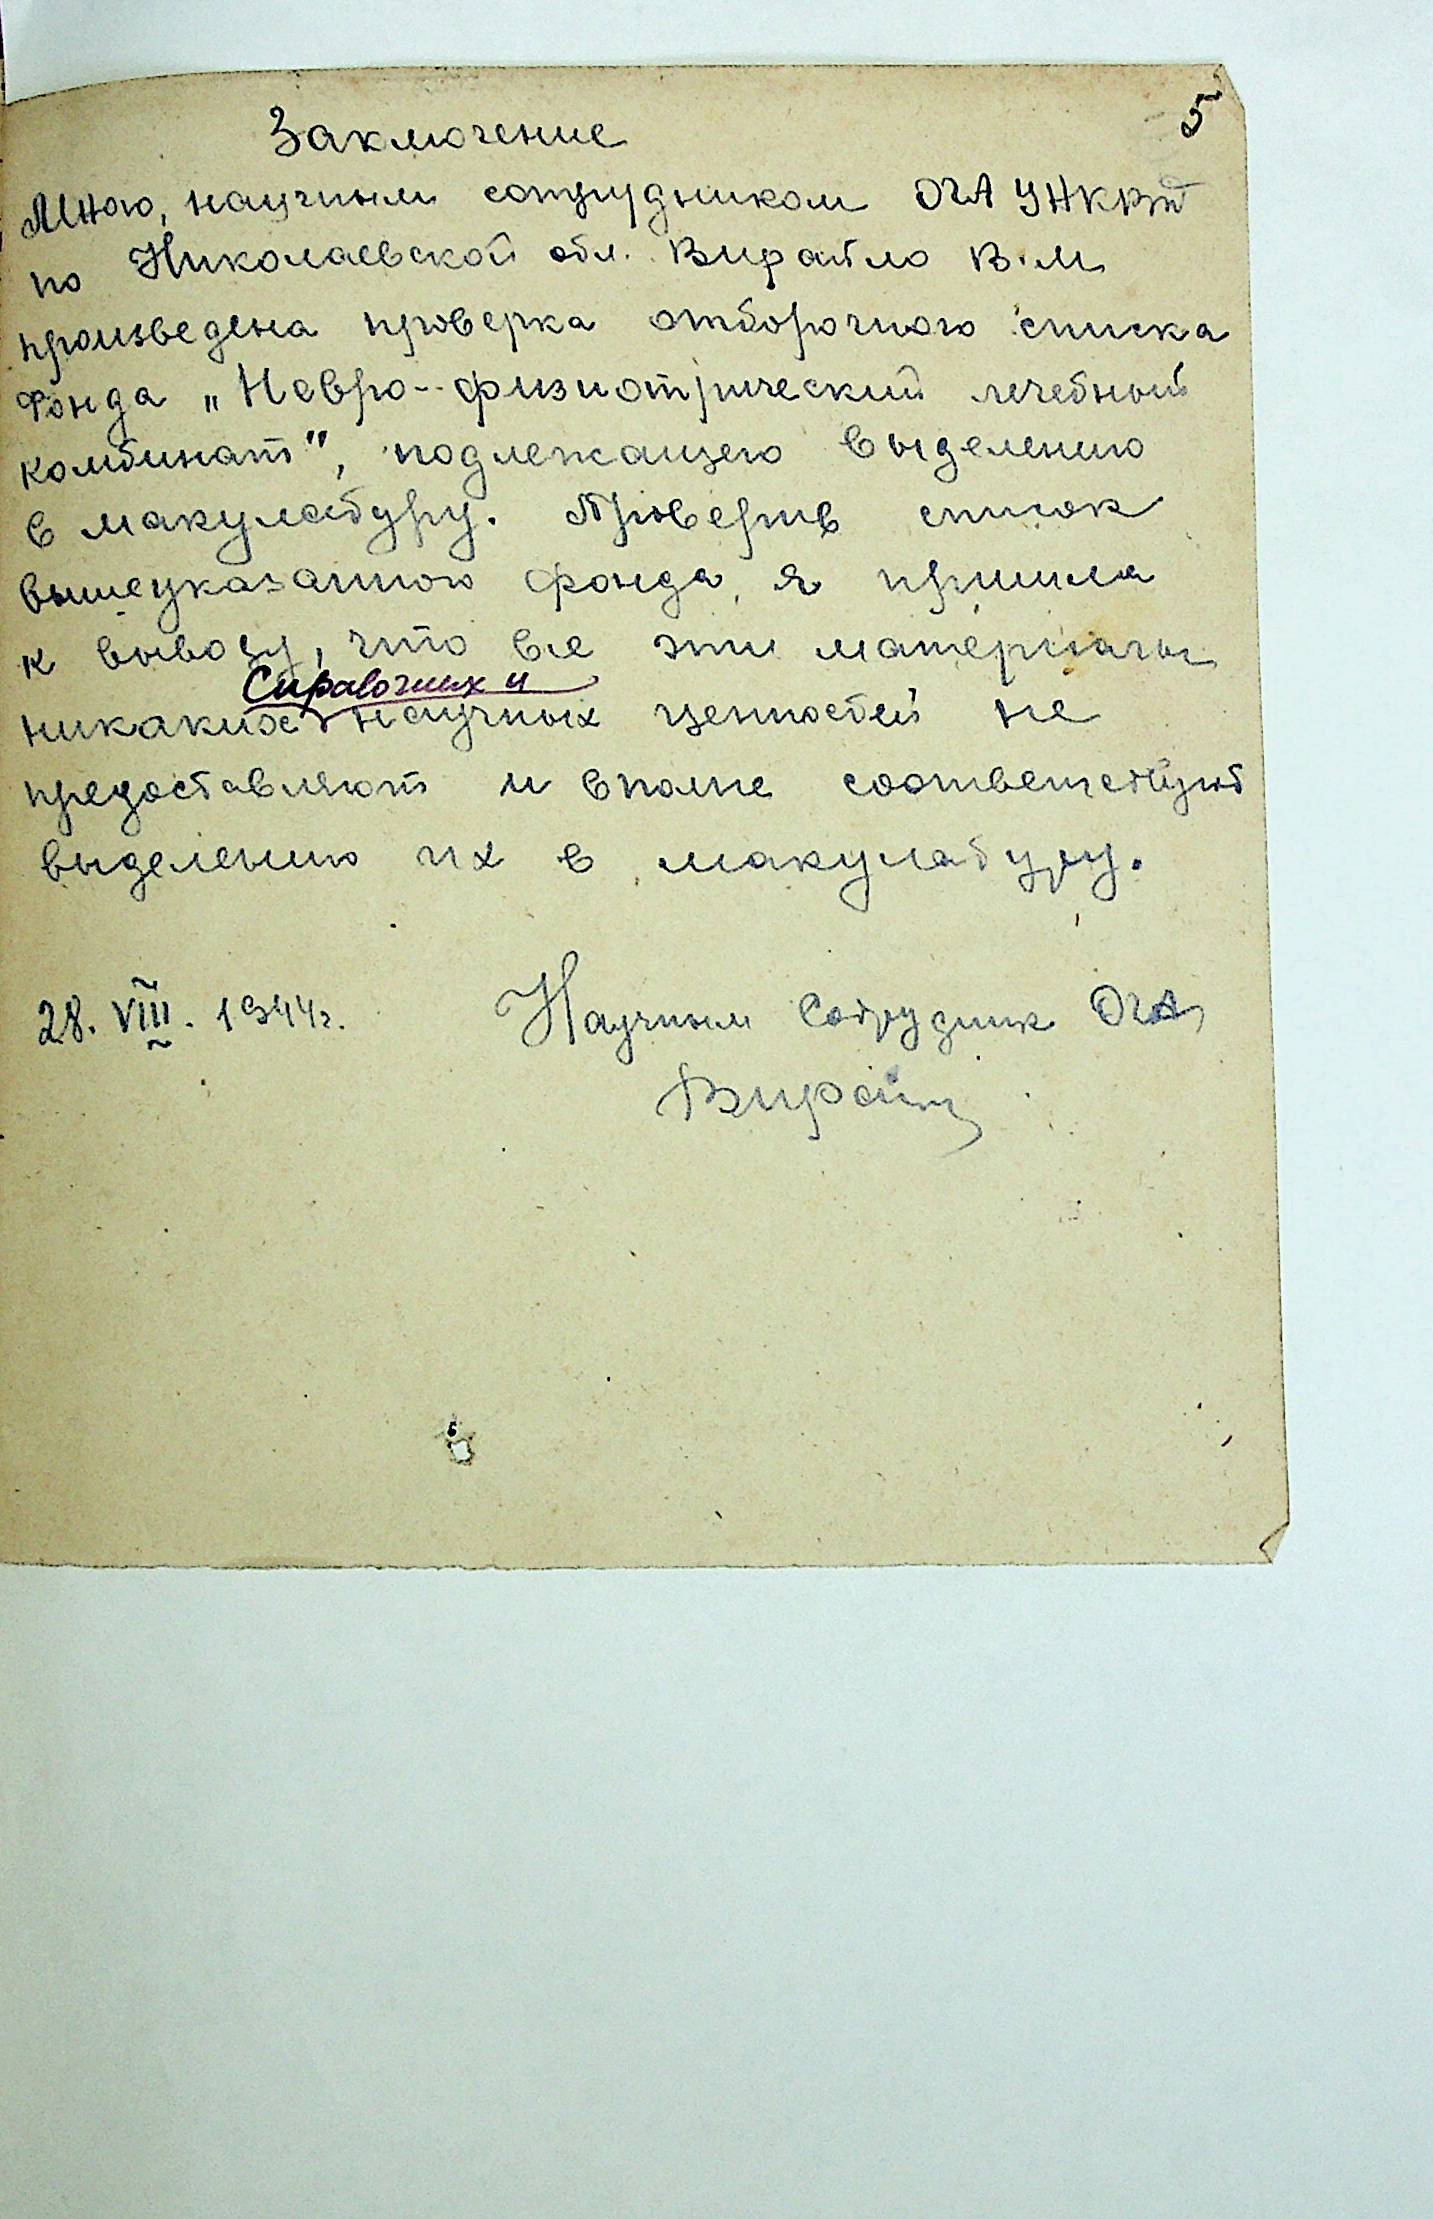 5
Заключение
Мною, научным сотрудником ОГА УНКВД
по Николаевской обл. В.М
произведена проверка отборочного списка
Фонда „Невро-физиотрический лечебный
комбинат", подлежащего выделению
в макулатуру. Проверив список
вышеуказанного фонда, я пришла
к выводу, что все эти материалы
Справочных и
никаких научных ценностей не
предоставляют и вполне соответствуют
выделению их в макулатуру.
28. VIII. 1944г. Научным Сотрудник ОГА